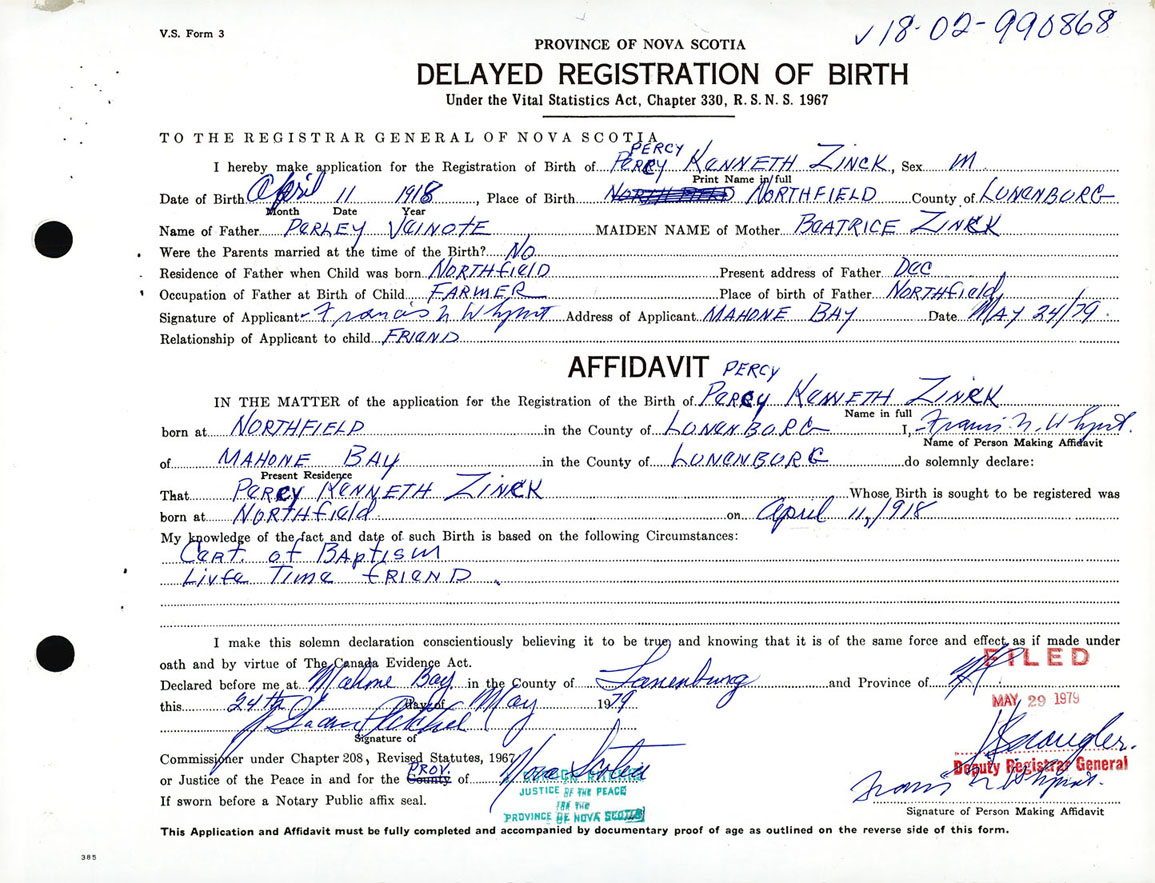 V.S. Form 3
√ 18-02-990868
PROVINCE OF NOVA SCOTIA
DELAYED REGISTRATION OF BIRTH
Under the Vital Statistics Act, Chapter 330, R. S. N. S. 1967
TO THE REGISTRAR GENERAL OF NOVA SCOTIA
PERCY
I hereby make application for the Registration of Birth of PERCY KENNETH ZINCK, Sex M
Print Name in full
Date of Birth April 11 1918, Place of Birth NORTHFIELD NORTHFIELD County of LUNENBURG
Month Date Year
Name of Father PERLEY VEINOTE MAIDEN NAME of Mother BEATRICE ZINCK
Were the Parents married at the time of the Birth? NO
Residence of Father when Child was born NORTHFIELD Present address of Father DEC
Occupation of Father at Birth of Child FARMER Place of birth of Father NORTHFIELD
Signature of Applicant Francis N Whynot Address of Applicant MAHONE BAY Date MAY 24/79
Relationship of Applicant to child FRIEND
AFFIDAVIT PERCY
IN THE MATTER of the application for the Registration of the Birth of PERCY KENNETH ZINCK
Name in full
born at NORTHFIELD in the County of LUNENBURG I, Francis N. Whynot.
Name of Person Making Affidavit
of MAHONE BAY in the County of LUNENBURG do solemnly declare:
Present Residence
That PERCY KENNETH ZINCK Whose Birth is sought to be registered was
born at NORTHFIELD on April 11, 1918
My knowledge of the fact and date of such Birth is based on the following Circumstances:
CERT. OF BAPTISM
LIFE TIME FRIEND
I make this solemn declaration conscientiously believing it to be true, and knowing that it is of the same force and effect as if made under
oath and by virtue of The Canada Evidence Act.
FILED
Declared before me at Mahone Bay in the County of Lunenburg and Province of NS
this 24th day of May 1979
MAY 29 1979
Signature of
Commissioner under Chapter 208, Revised Statutes, 1967
PROV.
or Justice of the Peace in and for the County of Nova Scotia
Deputy Registrar General
JUSTICE OF THE PEACE
FOR THE
PROVINCE OF NOVA SCOTIA
If sworn before a Notary Public affix seal.
Francis N Whynot.
Signature of Person Making Affidavit
This Application and Affidavit must be fully completed and accompanied by documentary proof of age as outlined on the reverse side of this form.
385